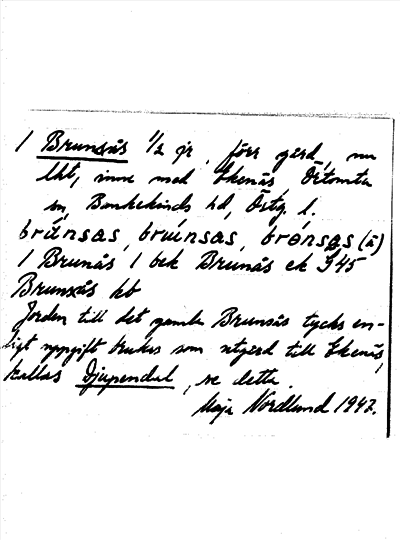 1 Brunsås 1/2 gr, förr gård, nu
lht, inne med Ekenäs, Örtomta
by, Bankekinds hd, Östg. l.
brúnsas, bruúnsas, brónsas (å)
1 Brunås 1 bek Brunås ek G45
Brunsås kb
Jorden till det gamla Brunsås tycks en-
ligt uppgift brukas som utgärd till Ekenäs,
kallas Djupendal, se detta.
Maja Nordlund 1947.